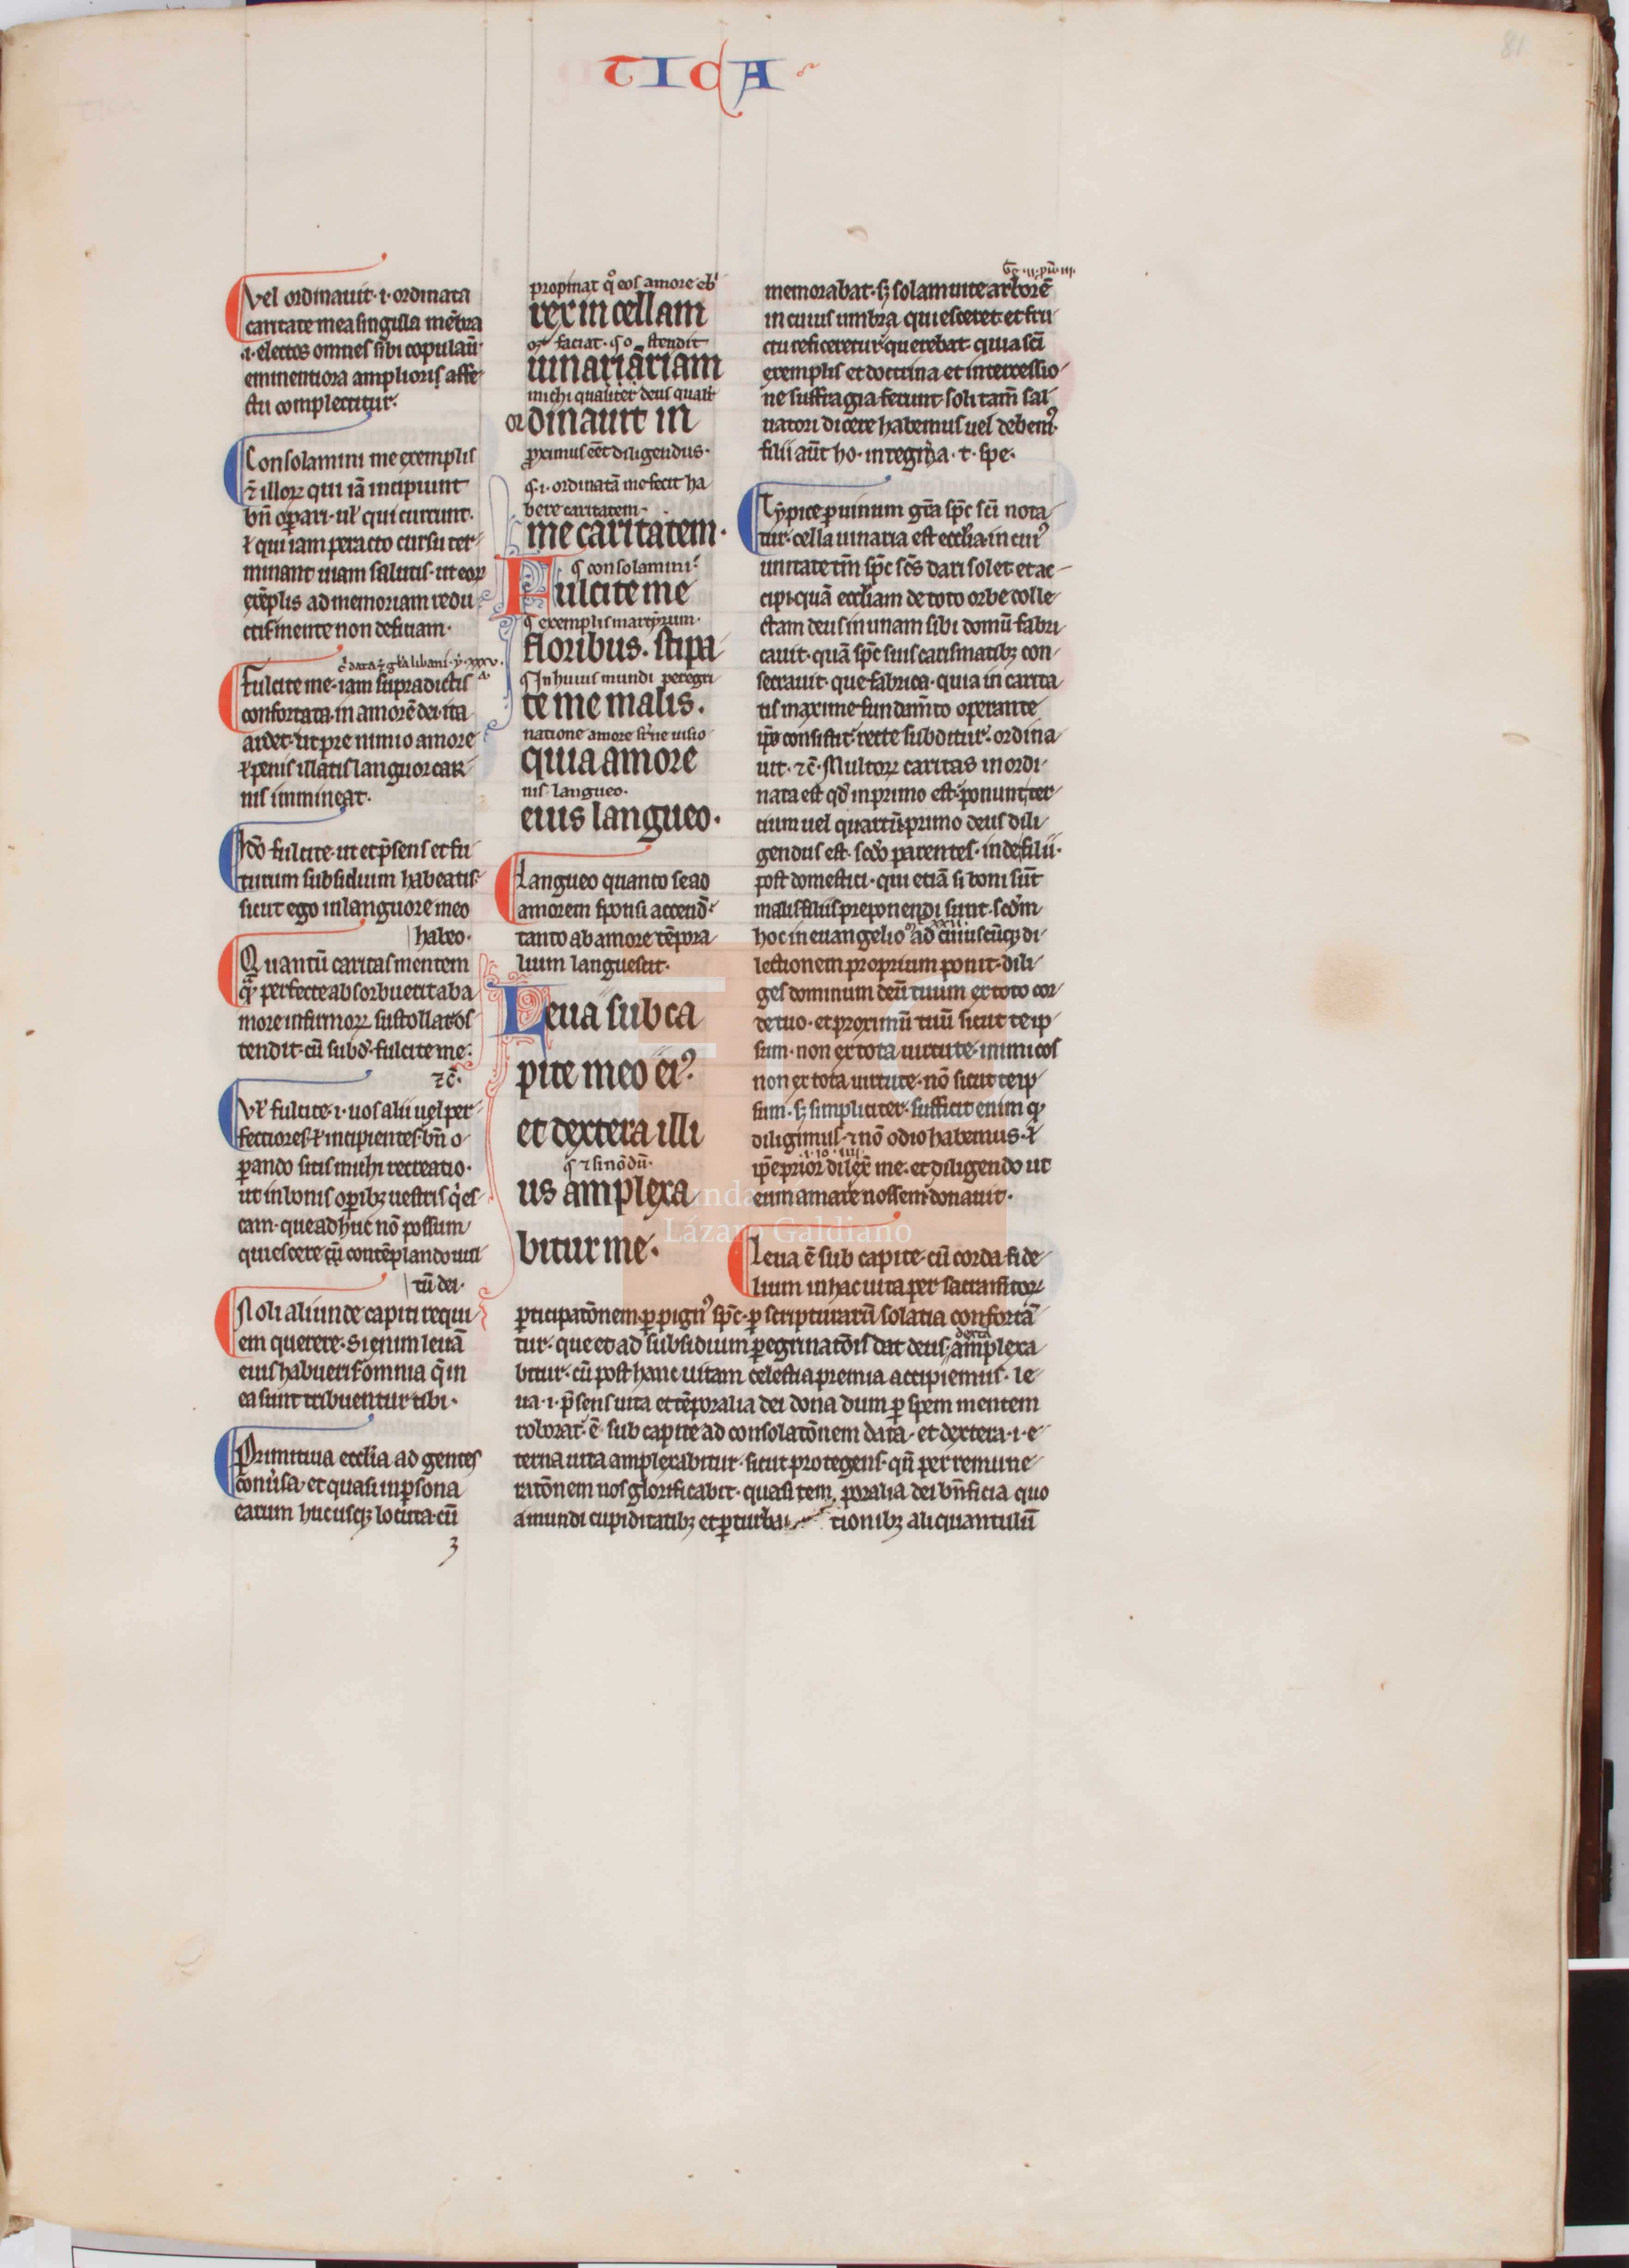 TICA
81
vel ordinauit .i. ordinata
caritate mea singula mẽbra
.i. electos omnes sibi copulaũ
eminentiora amplioris affe
ctu complectitur.
Consolamini me exemplis
⁊ illoꝝ qui iã incipiunt
bñ oꝑari. ul̃ qui currunt.
ł qui iam peracto cursu ter
minant uiam salutis. ut eoꝝ
exẽplis ad memoriam redu
ctis mente non deficiam.
Fulcite me. iam supradictis
confortata. in amorẽ dei. ita
ardet. ut pre nimio amore
ł penis illatis languor car
nis immineat.
Ideo fulcite. ut et p̃sens et fu
turum subsidium habeatis.
sicut ego in languore meo
habeo.
Quantũ caritas mentem
perfecte absorbuerit ab a
more infimoꝝ sustollat os
tendit. cũ subd̃. fulcite me.
⁊c̃.
Vl̃ fulcite .i. uos alii uel per
fectiores ł incipientes. bñ o
ꝑando sitis michi recreatio.
ut in bonis oꝑibꝫ uestris q̇es
cam. que adhuc nõ possum
quiescere cũ contẽplando uul
tũ dei.
Noli aliunde capiti requi
em querere. si enim leuã
eius habueris omnia q̃ in
ea sunt tribuentur tibi.
Primitiua eccl̃ia ad gentes
conũsa. et quasi in ꝑsona
earum hucusqꝫ locuta. cũ
propinat q̊ eos amore eb̃
rex in cellam
uinariam
michi qualiter deus qualr̃
ordinauit in
proximus eẽt diligendus.
.i. ordinatã me fecit ha
bere caritatem.
me caritatem.
consolamini
Fulcite me
exemplis martyrum.
floribus. stipa
In huius mundi peregri
te me malis.
natione amore siue uisio
quia amore
nis langueo.
eius langueo.
Langueo quanto se ad
amorem sponsi accend̃
tanto ab amore tẽpora
lium languescit.
Leua sub ca
pite meo ei᷒.
et dextera illi
us amplexa
bitur me.
memorabat. sꝫ solam uite arborẽ
in cuius umbra quiesceret. et fru
ctu reficeretur querebat. quia sc̃i
exemplis et doctrina et intercessio
ne suffragia ferunt. soli tam̃ sal
uatori dicere habemus uel debem᷒.
filii aũt ho. in tegm̃a. t. spe.
Typice ꝑ uinum gr̃a sp̃c sc̃i nota
tur. cella uinaria est eccl̃ia. in cui᷒
unitate tm̃ sp̃c sc̃s dari solet et ac
cipi. quã eccl̃iam de toto orbe colle
ctam deus in unam sibi domũ fabri
cauit. quã sp̃c sui carismatibꝫ con
secrauit. que fabrica. quia in carita
tis maxime fundam̃to operante
ip̃o consistit. recte subditur. ordina
uit. ⁊c̃. Multoꝝ caritas inordi
nata est qd̃ in primo est ponunt ter
cium uel quartũ. primo deus dili
gendus est. scd̃o parentes. inde filii.
post domestici. qui etiã si boni sũt
malis filiis preponendi sunt. scd̃m
hoc in euangelio ad cuiuscũqꝫ di
lectionem proprium ponit. dili
ges dominum deũ tuum ex toto cor
de tuo. et proximũ tuũ sicut te ip
sum. non ex tota uirtute. inimicos
non ex tota uirtute. nõ sicut te ip
sum. sꝫ simpliciter. sufficit enim ꝙ
diligimus. ⁊ nõ odio habemus. ł
ip̃e prior dilex̃ me. et diligendo ut
eum amare nossem donauit.
Leua ẽ sub capite. cũ corda fide
lium in hac uita per sacram̃toꝝ
ꝑticipatõnem. ꝑ pign᷒ sp̃c. ꝑ scripturarũ solatia confortã
tur. que et ad subsidium ꝑegrinatõis dat deus. amplexa
bitur. cũ post hanc uitam celestia premia accipiemus. le
ua .i. p̃sens uita et tẽporalia dei dona dum ꝑ spem mentem
roborat. ẽ sub capite ad consolatõnem data. et dextera .i. e
terna uita amplexabitur. sicut protegens. qñ per remune
ratõnem nos glorificabit. quasi tem poralia dei bñficia quo
a mundi cupiditatibꝫ et ꝑturba tionibꝫ aliquantulũ
Lázaro Galdiano